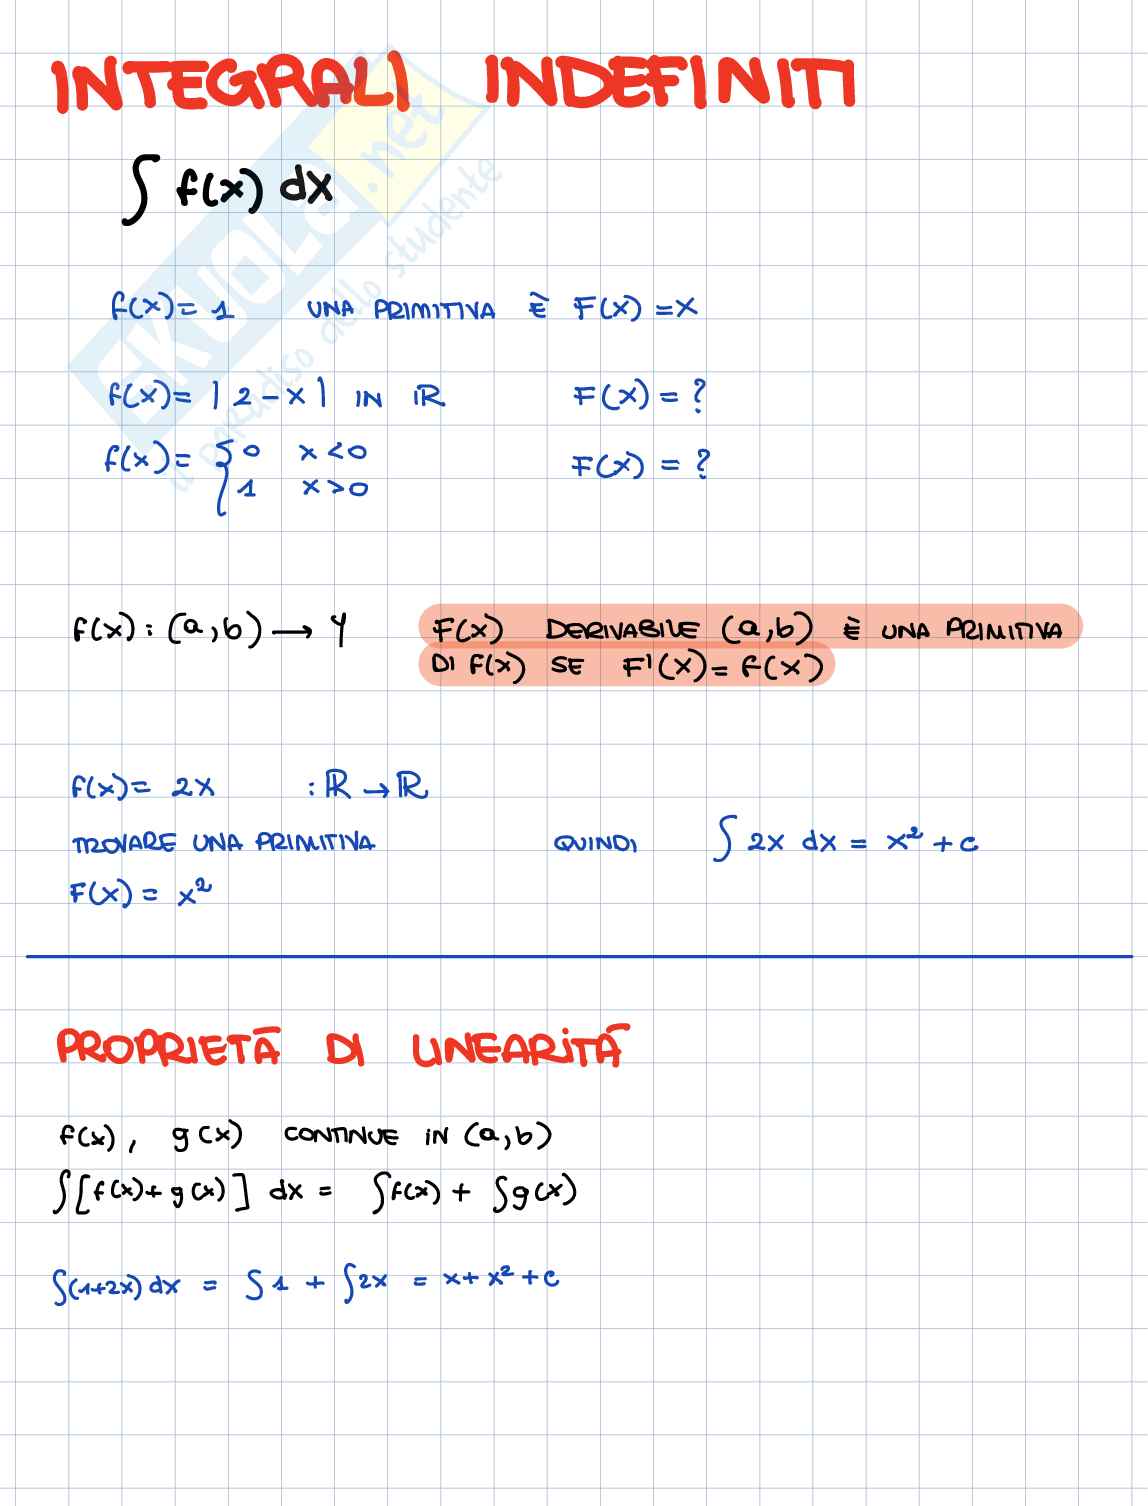 INTEGRALI INDEFINITI
∫ f(x) dx
SKUOLA.net
il paradiso dello studente
f(x) = 1 UNA PRIMITIVA È F(x) = x
f(x) = |2-x| IN ℝ F(x) = ?
f(x) = { 0 x<0 F(x) = ?
1 x>0
f(x) : (a,b) → Y F(x) DERIVABILE (a,b) È UNA PRIMITIVA
DI f(x) SE F'(x) = f(x)
f(x) = 2x : ℝ → ℝ
TROVARE UNA PRIMITIVA QUINDI ∫ 2x dx = x² + c
F(x) = x²
PROPRIETÀ DI LINEARITÀ
f(x), g(x) CONTINUE IN (a,b)
∫[f(x)+g(x)] dx = ∫f(x) + ∫g(x)
∫(1+2x) dx = ∫1 + ∫2x = x + x² + c